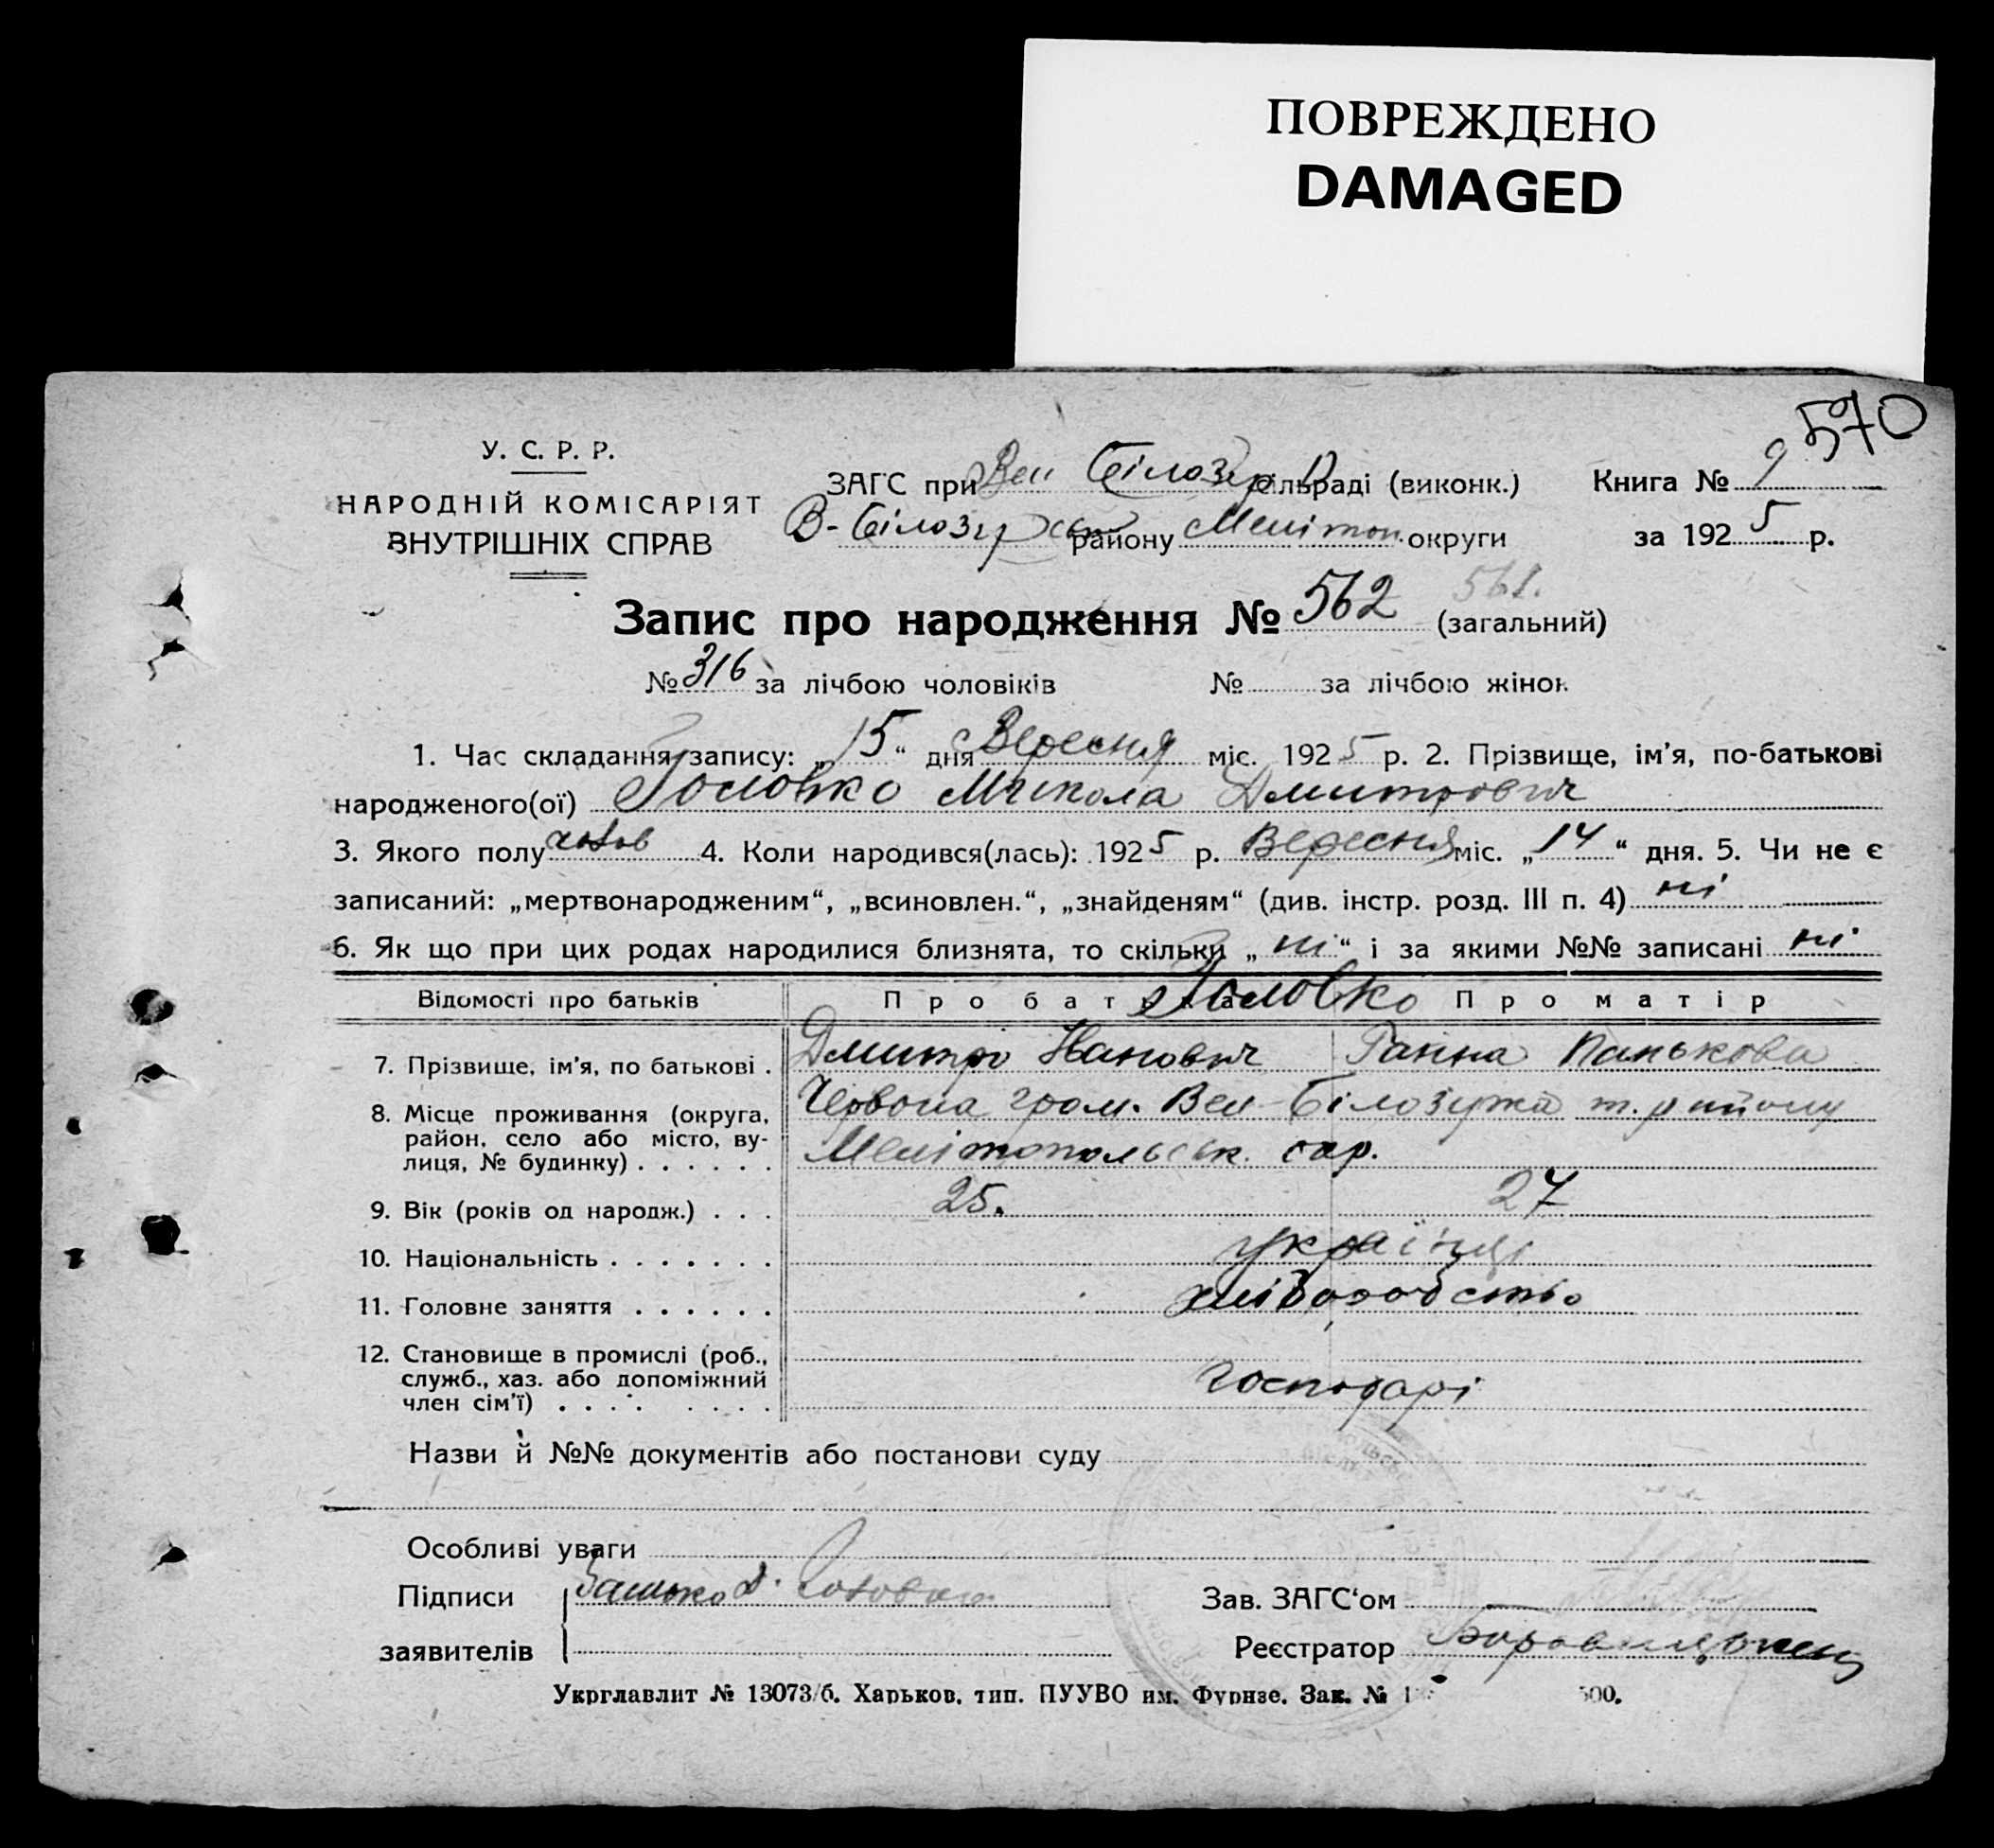 ПОВРЕЖДЕНО
DAMAGED
570
У. С. Р. Р.
НАРОДНІЙ КОМІСАРІЯТ
ВНУТРІШНІХ СПРАВ
ЗАГС при Вел Білозір сільраді (виконк.)
Книга № 9
В-Білозірськ району Мелітоп. округи
за 1925 р.
Запис про народження № 562 (загальний) 561.
№ 316 за лічбою чоловіків № за лічбою жінок
1. Час складання запису: „15“ дня Вересня міс. 1925 р. 2. Прізвище, ім'я, по-батькові
народженого(ої) Головко Микола Дмитрович
3. Якого полу чолов 4. Коли народився(лась): 1925 р. Вересня міс. „14“ дня. 5. Чи не є
записаний: „мертвонародженим“, „всиновлен.“, „знайденям“ (див. інстр. розд. III п. 4) ні
6. Як що при цих родах народилися близнята, то скільки „ні“ і за якими №№ записані ні
Відомості про батьків Про батька Головко Про матір
7. Прізвище, ім'я, по батькові . Дмитро Іванович Ганна Панькова
8. Місце проживання (округа, район, село або місто, вулиця, № будинку) . . . . . . Червона гром. Вел-Білозірка району
Мелітопольськ. окр.
9. Вік (років од народж.) . . . 25. 27
10. Національність . . . . . . . українці
11. Головне заняття . . . . . . хліборобство
12. Становище в промислі (роб., служб., хаз. або допоміжний член сім'ї) . . . . . . . . господарі
Назви й №№ документів або постанови суду
Особливі уваги
Підписи заявителів Батько Д. Головко
Зав. ЗАГС'ом
Реєстратор
Укрглавлит № 13073/б. Харьков, тип. ПУУВО им. Фрунзе. Зак. № 1 500.